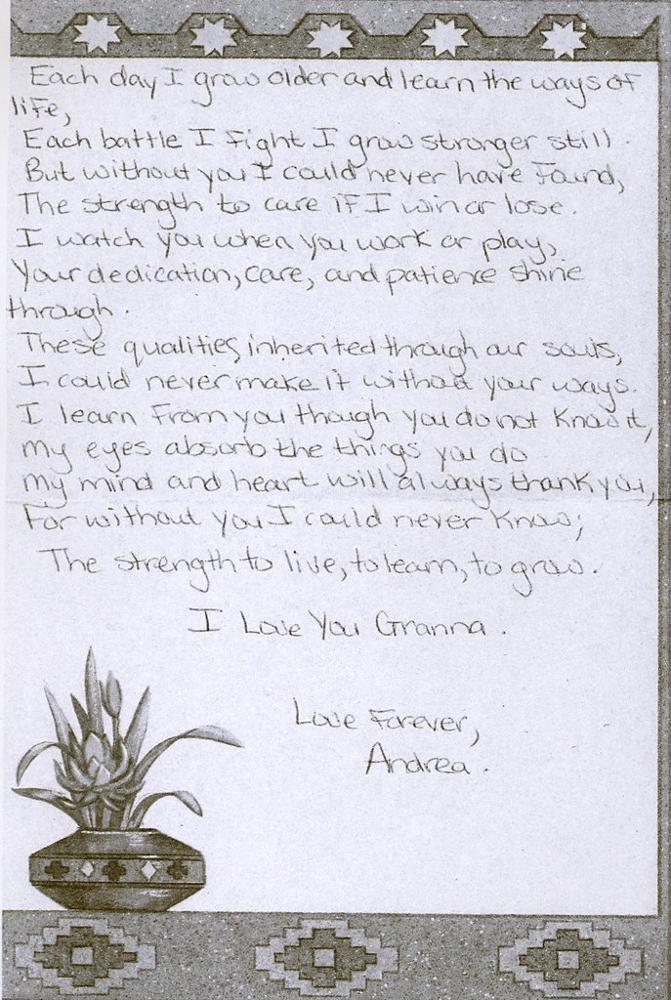 Each day I grow older and learn the ways of
life,
Each battle I fight I grow stronger still.
But without you I could never have found,
The strength to care if I win or lose.
I watch you when you work or play,
Your dedication, care, and patience shine
through.
These qualities, inherited through our souls,
I could never make it without your ways.
I learn from you though you do not know it,
My eyes absorb the things you do
My mind and heart will always thank you,
For without you I could never know;
The strength to live, to learn, to grow.
I Love You Granna.
Love Forever,
Andrea.